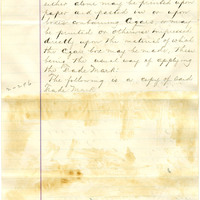 either alone may be printed upon
paper and pasted in or upon
boxes containing Cigars, or may
be printed or otherwise impressed
directly upon the material of which
the Cigar box may be made. These
being the usual way of applying
the Trade Mark.
The following is a copy of said
Trade Mark